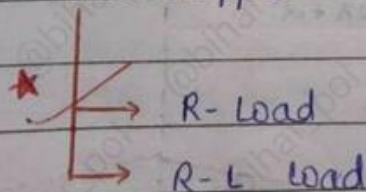 R-Load
R-L Load